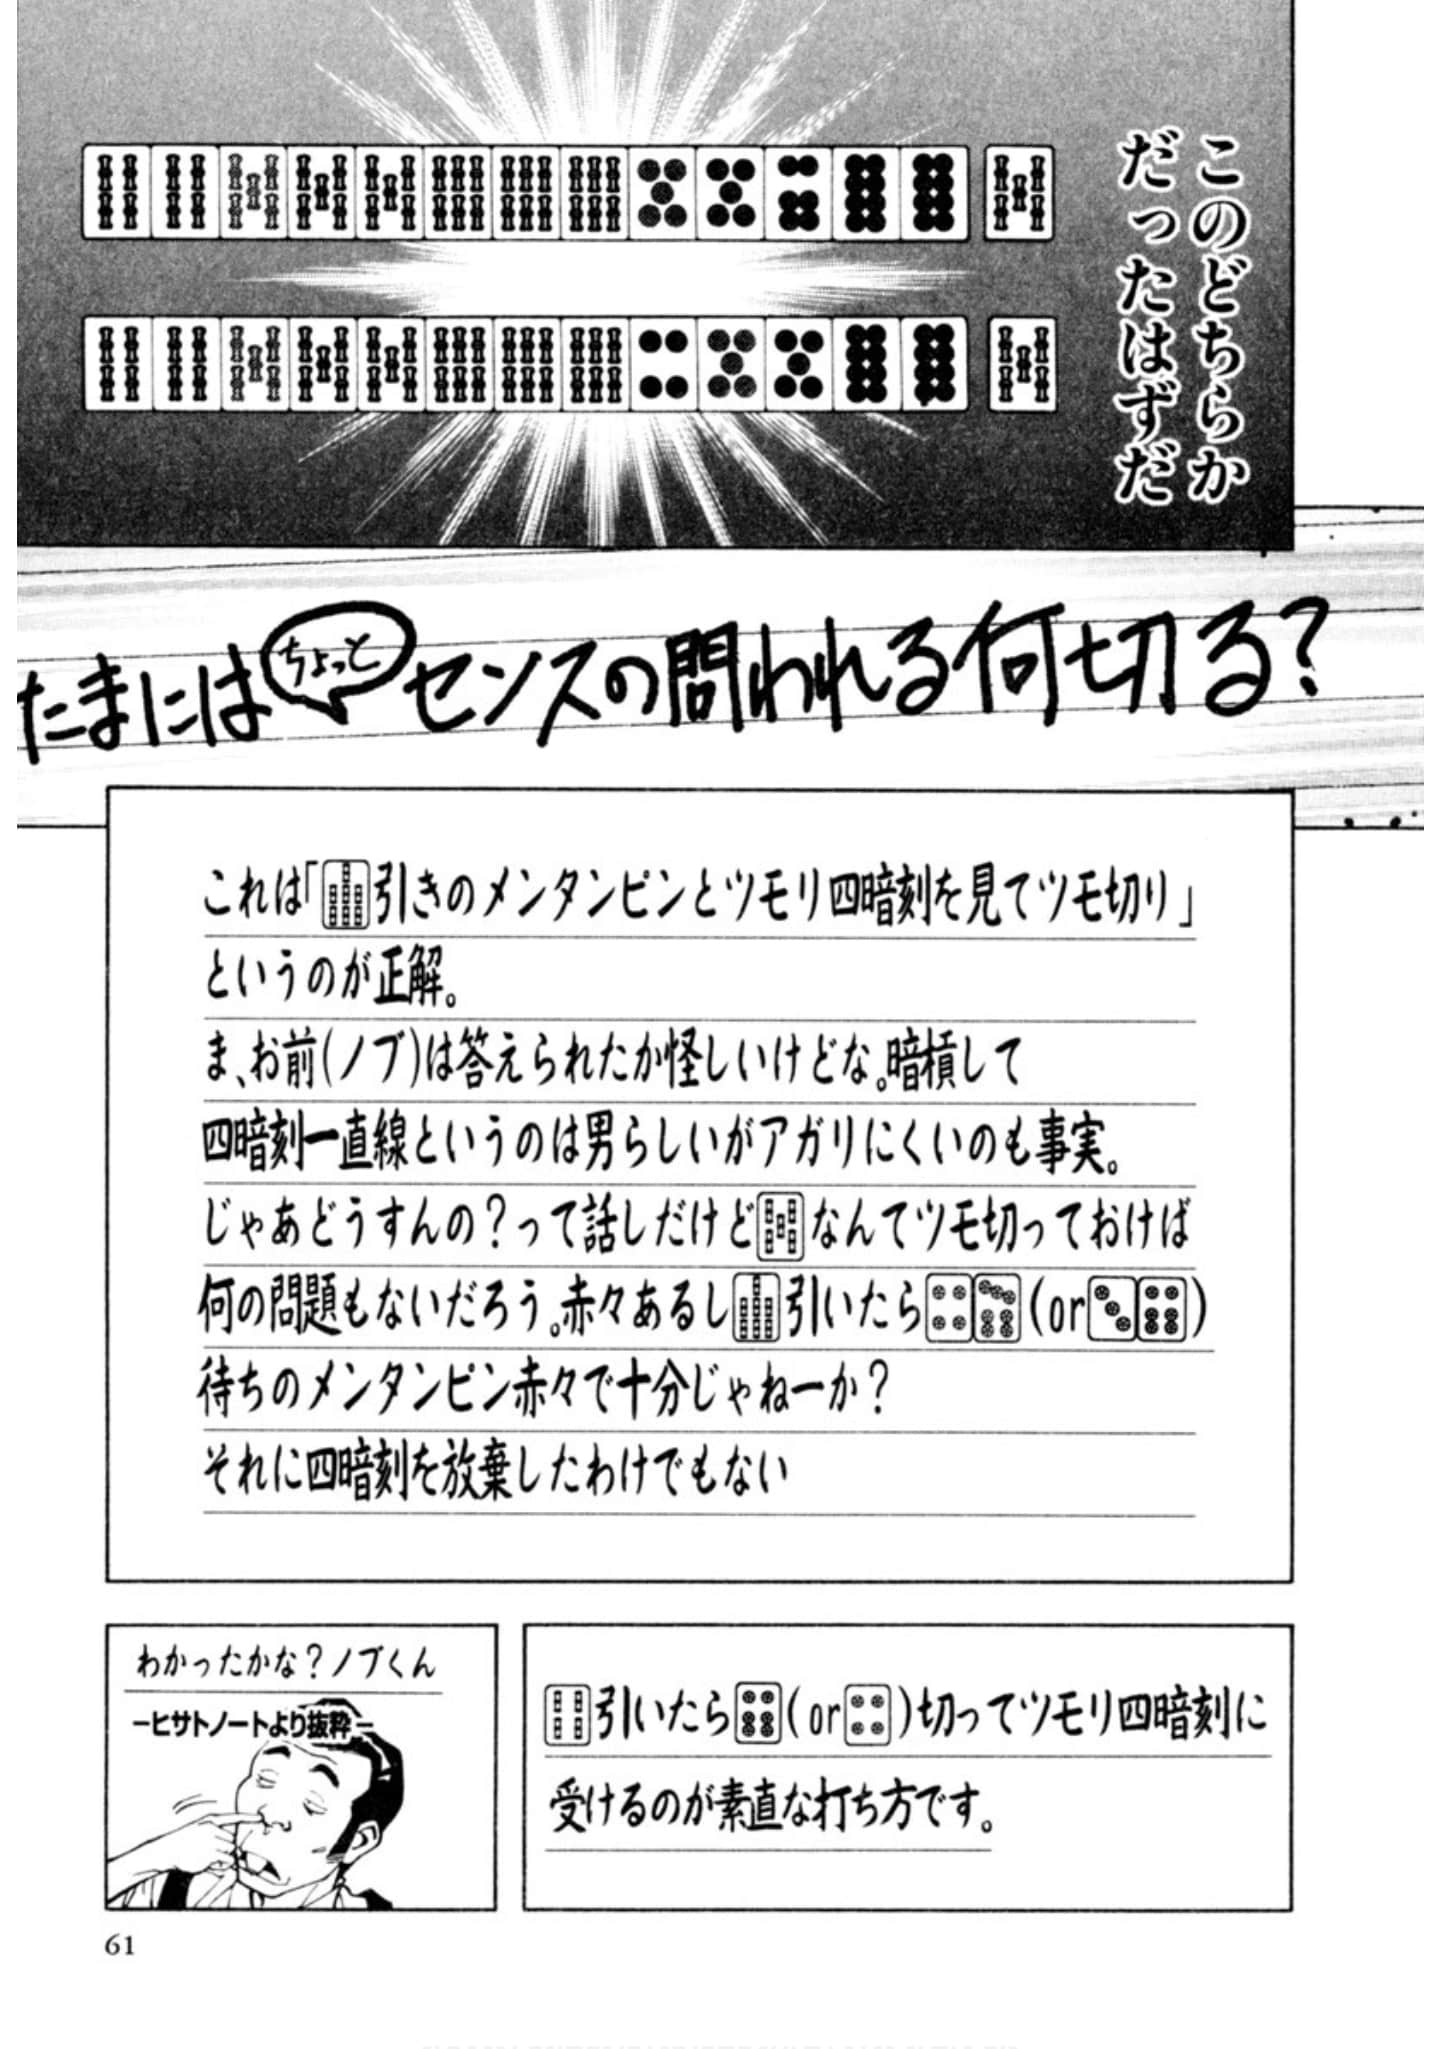 このどちらか
だったはずだ
たまにはちょっとセンスの問われる何切る?
これは「引きのメンタンピンとツモリ四暗刻を見てツモ切り」
というのが正解。
ま、お前(ノブ)は答えられたか怪しいけどな。暗槓して
四暗刻一直線というのは男らしいがアガリにくいのも事実。
じゃあどうすんの?って話しだけどなんてツモ切っておけば
何の問題もないだろう。赤々あるし引いたら(or)
待ちのメンタンピン赤々で十分じゃねーか?
それに四暗刻を放棄したわけでもない
引いたら(or)切ってツモリ四暗刻に
受けるのが素直な打ち方です。
わかったかな?ノブくん
ーヒサトノートより抜粋ー
61